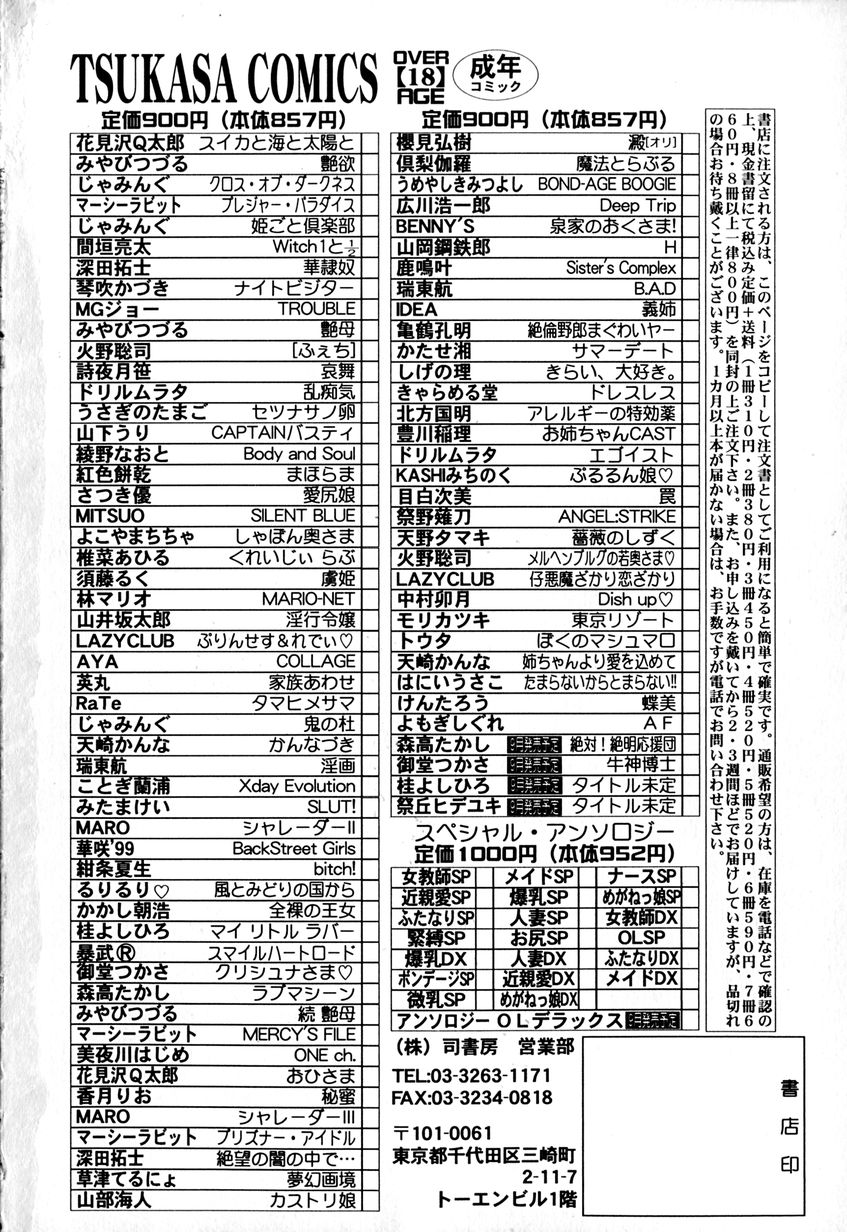 TSUKASA COMICS
OVER
【18】
AGE
成年
コミック
定価900円（本体857円）
花見沢Q太郎 スイカと海と太陽と
みやびつづる 艶欲
じゃみんぐ クロス・オブ・ダークネス
マーシーラビット プレジャー・パラダイス
じゃみんぐ 姫ごと倶楽部
間垣亮太 Witch1と½
深田拓士 華隷奴
琴吹かづき ナイトビジター
MGジョー TROUBLE
みやびつづる 艶母
火野聡司 [ふぇち]
詩夜月笹 哀舞
ドリルムラタ 乱痴気
うさぎのたまご セツナサノ卵
山下うり CAPTAINバスティ
綾野なおと Body and Soul
紅色餅乾 まほらま
さつき優 愛尻娘
MITSUO SILENT BLUE
よこやまちちゃ しゃぼん奥さま
椎菜あひる くれいじぃ らぶ
須藤るく 虜姫
林マリオ MARIO-NET
山井坂太郎 淫行令嬢
LAZYCLUB ぷりんせす＆れでぃ♡
AYA COLLAGE
英丸 家族あわせ
RaTe タマヒメサマ
じゃみんぐ 鬼の杜
天崎かんな かんなづき
瑞東航 淫画
ことぎ蘭浦 Xday Evolution
みたまけい SLUT!
MARO シャレーダーII
華咲'99 BackStreet Girls
紺条夏生 bitch!
るりるり♡ 風とみどりの国から
かかし朝浩 全裸の王女
桂よしひろ マイ リトル ラバー
暴武Ⓡ スマイルハートロード
御堂つかさ クリシュナさま♡
森高たかし ラブマシーン
みやびつづる 続 艶母
マーシーラビット MERCY'S FILE
美夜川はじめ ONE ch.
花見沢Q太郎 おひさま
香月りお 秘蜜
MARO シャレーダーIII
マーシーラビット プリズナー・アイドル
深田拓士 絶望の闇の中で…
草津てるにょ 夢幻画境
山部海人 カストリ娘
定価900円（本体857円）
櫻見弘樹 澱[オリ]
倶梨伽羅 魔法とらぶる
うめやしきみつよし BOND-AGE BOOGIE
広川浩一郎 Deep Trip
BENNY'S 泉家のおくさま!
山岡鋼鉄郎 H
鹿鳴叶 Sister's Complex
瑞東航 B.A.D
IDEA 義姉
亀鶴孔明 絶倫野郎まぐわいヤー
かたせ湘 サマーデート
しげの理 きらい、大好き。
きゃらめる堂 ドレスレス
北方国明 アレルギーの特効薬
豊川稲理 お姉ちゃんCAST
ドリルムラタ エゴイスト
KASHIみちのく ぷるるん娘♡
目白次美 罠
祭野薙刀 ANGEL:STRIKE
天野タマキ 薔薇のしずく
火野聡司 メルヘンブルグの若奥さま♡
LAZYCLUB 仔悪魔ざかり恋ざかり
中村卯月 Dish up♡
モリカツキ 東京リゾート
トウタ ぼくのマシュマロ
天崎かんな 姉ちゃんより愛を込めて
はにいうさこ たまらないからとまらない!!
けんたろう 蝶美
よもぎしぐれ AF
森高たかし 絶対！絶明応援団
御堂つかさ 牛神博士
桂よしひろ タイトル未定
祭丘ヒデユキ タイトル未定
スペシャル・アンソロジー
定価1000円（本体952円）
女教師SP メイドSP ナースSP
近親愛SP 爆乳SP めがねっ娘SP
ふたなりSP 人妻SP 女教師DX
緊縛SP お尻SP OLSP
爆乳DX 人妻DX ふたなりDX
ボンデージSP 近親愛DX メイドDX
微乳SP めがねっ娘DX
アンソロジー OLデラックス
（株）司書房 営業部
TEL:03-3263-1171
FAX:03-3234-0818
〒101-0061
東京都千代田区三崎町
2-11-7
トーエンビル1階
書店印
書店に注文される方は、このページをコピーして注文書としてご利用になると簡単で確実です。通販希望の方は、在庫を電話などで確認の
上、現金書留にて税込み定価＋送料（1冊310円・2冊380円・3冊450円・4冊520円・5冊520円・6冊590円・7冊6
60円・8冊以上一律800円）を同封の上ご注文下さい。また、お申し込みを戴いてから2・3週間ほどでお届けしていますが、品切れ
の場合お待ち戴くことがございます。1カ月以上本が届かない場合は、お手数ですが電話でお問い合わせ下さい。